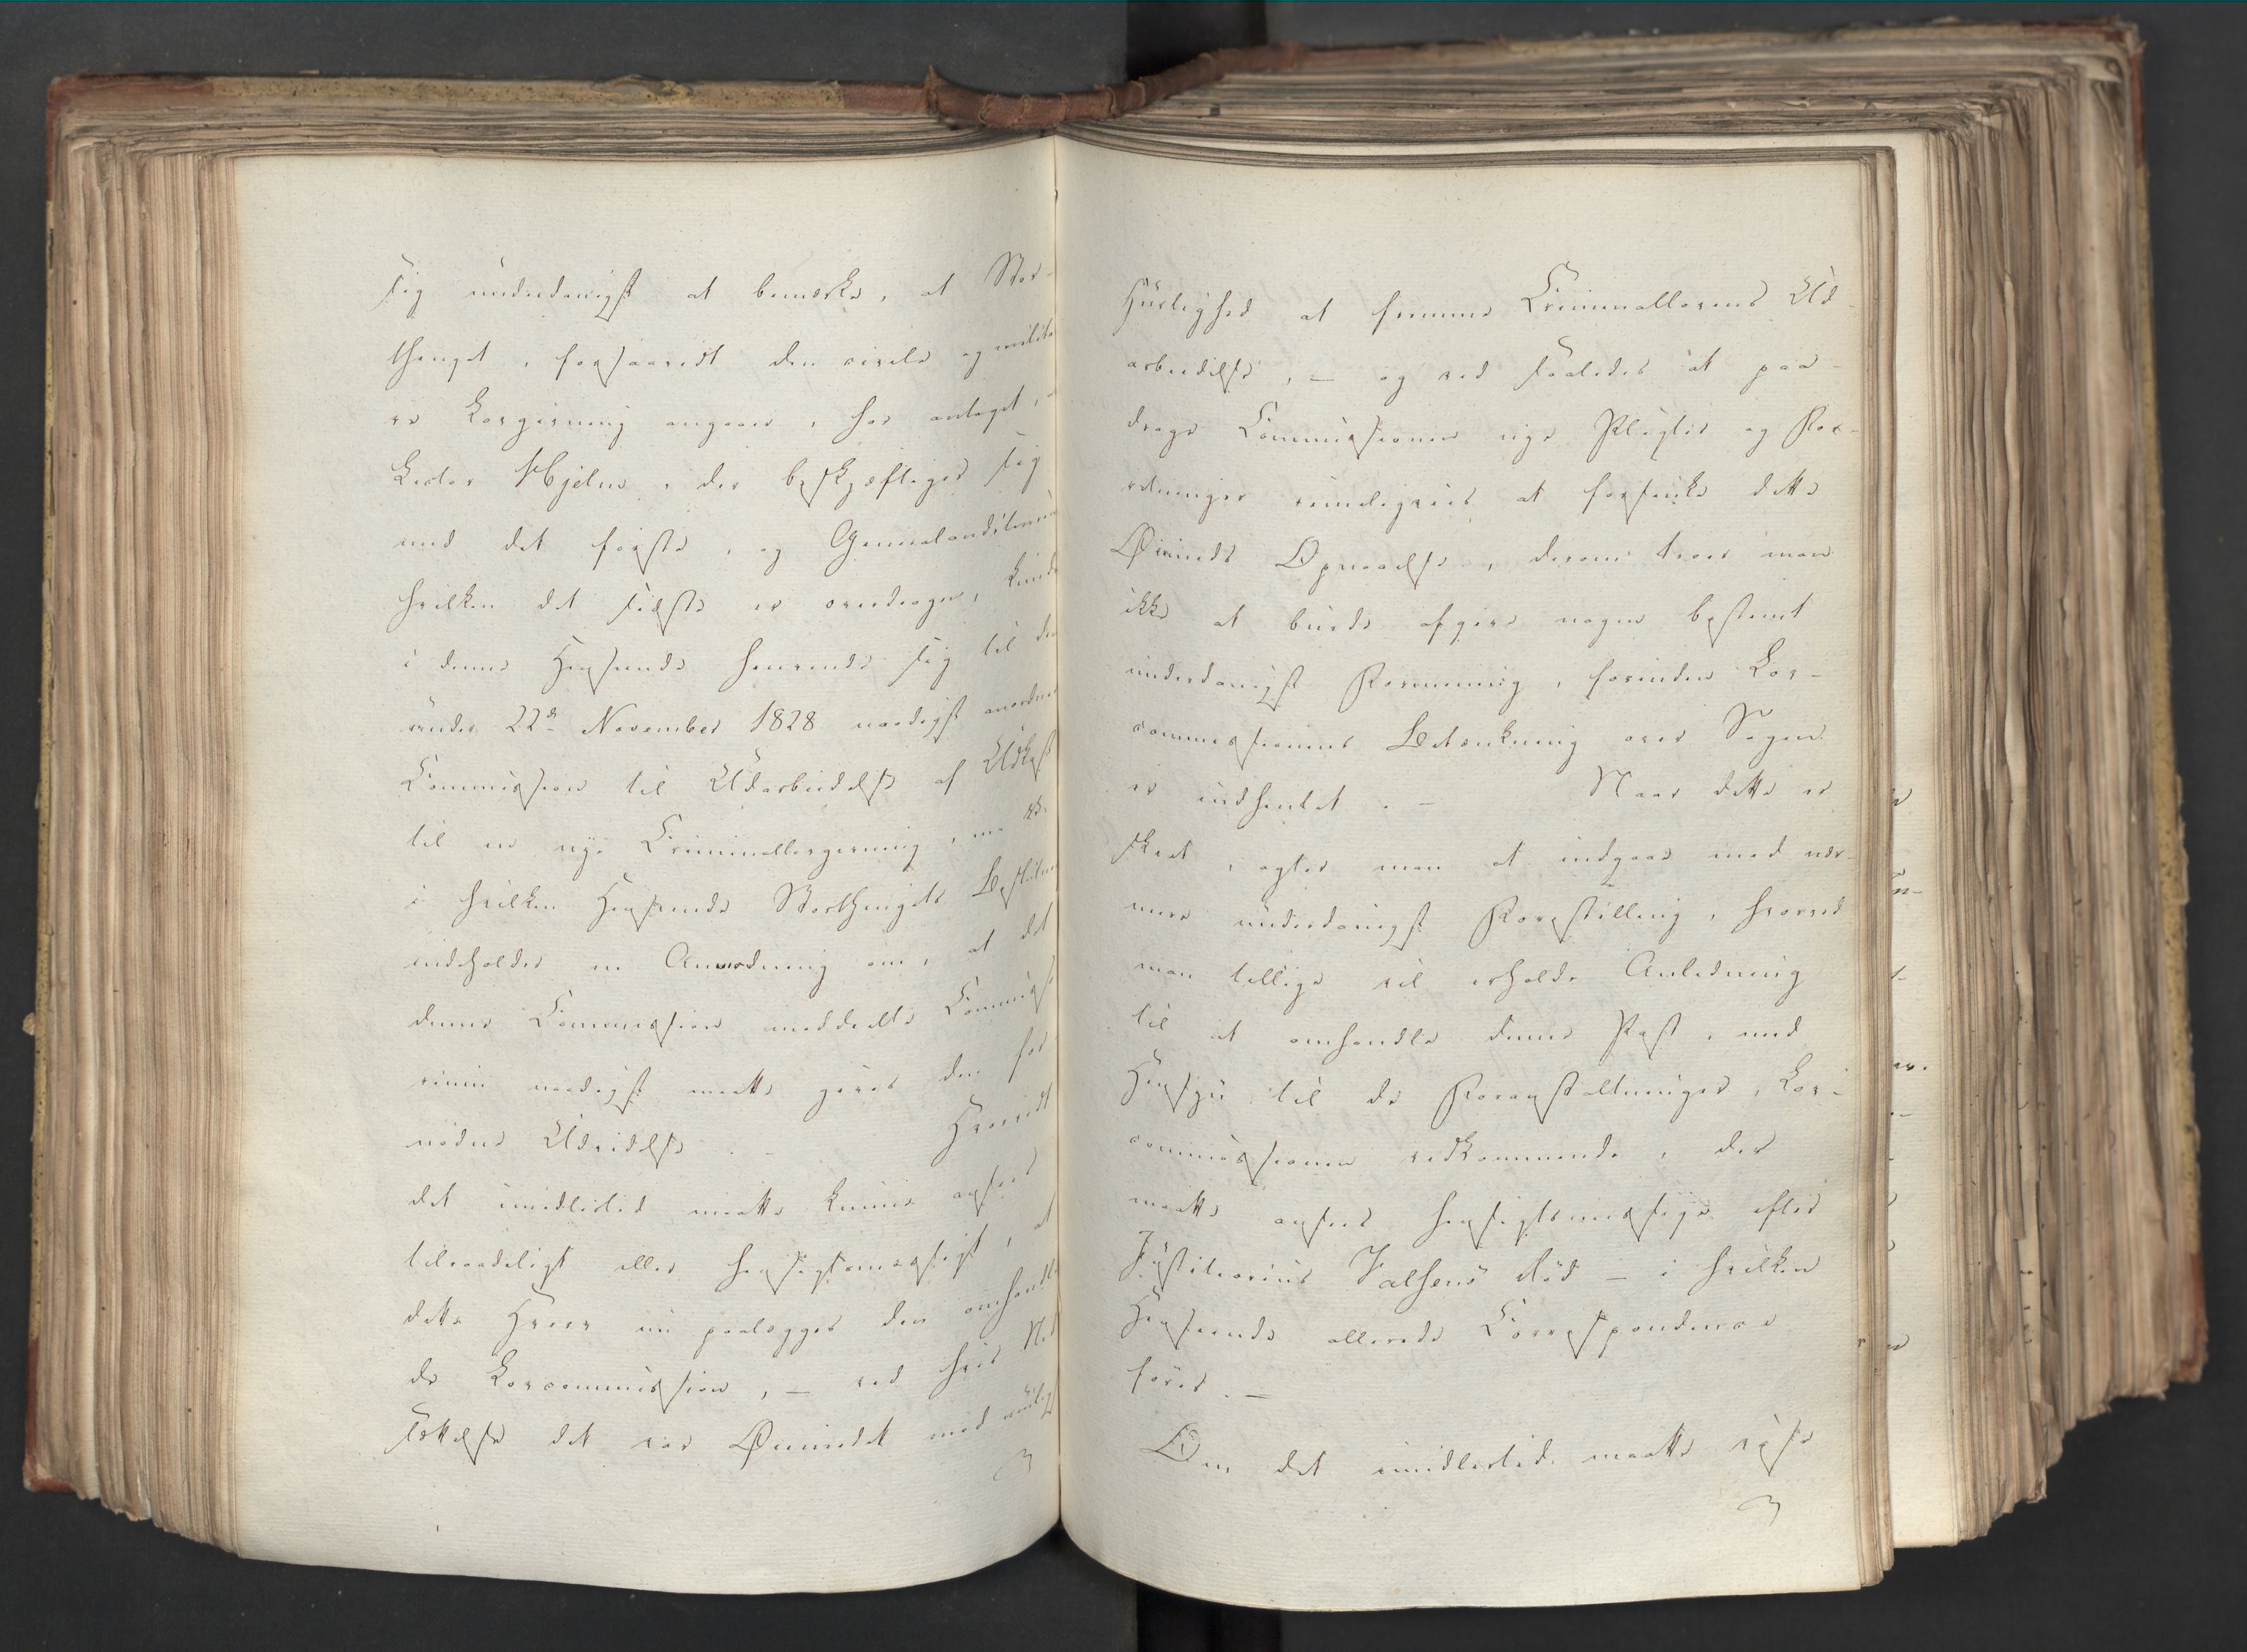 sig underdanigst at bemærke, at Stor-
thinget, forsaavidt den civile og milite
re Lovgivning angaaer, har antaget, a
Lector Hjelm, der beskjæftiger sig
med det første, og Generalauditeuren
hvilken det sidste er overdragen, kunde
i denne Henseende henvende sig til den
under 22de November 1828 naadigst anordne
Commission til Udarbeidelse af Udkast
til en nye Criminallovgivning, 
i hvilken Henseende Storthingets Beslutn
indeholder en Anmodning om, at det
denne Commission meddeelte Commisso
rium naadigst maatte gives den for
nødne Udvidelse. - Hvorvidt
det imidlertid maatte kunne ansees
tilraadeligt eller hensigtsmæssigt, at
dette Hverv nu paalægges den omhandle
de Lovcommission, – ved hvis Ned
sættelse det var Øiemedet med muligst
Hurtighed at fremme Criminallovens Ud-
arbeidelse, – og ved saaledes at paa-
drage Commissionen nye Pligter og For-
retninger rimeligviis at forsinke dette
Øiemeds Opnaaelse, derom troer man
ikke at burde afgive nogen bestemt
underdanigst Formening, forinden Lov-
commissionens Betænkning over Sagen
er indhentet. - Naar dette er
skeet, agter man at indgaae med nær-
mere underdanigst Forestilling, hvorved
man tillige vil erholde Anledning
til at omhandle denne Post, med
Hensyn til de Foranstaltninger, Lov-
commissionen vedkommende, der
maatte ansees hensigtsmæssige efter
Justitiarius Falsens Død – i hvilken
Henseende allerede Correspondence
føres. –
Om det imidlertid maatte